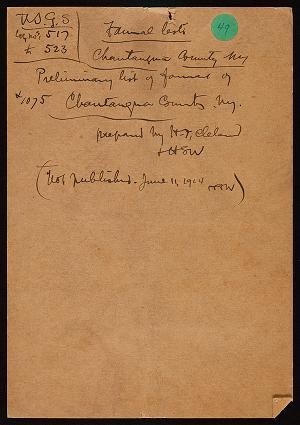 U.S.G.S
Loc. nos. 517
to 523
& 1075
Faunal lists
49
Chautauqua County Ny
Preliminary list of faunas of
Chautauqua County, Ny.
prepared by H.F. Cleland
+ HSW
(Not published - June 11, 1904
HSW)